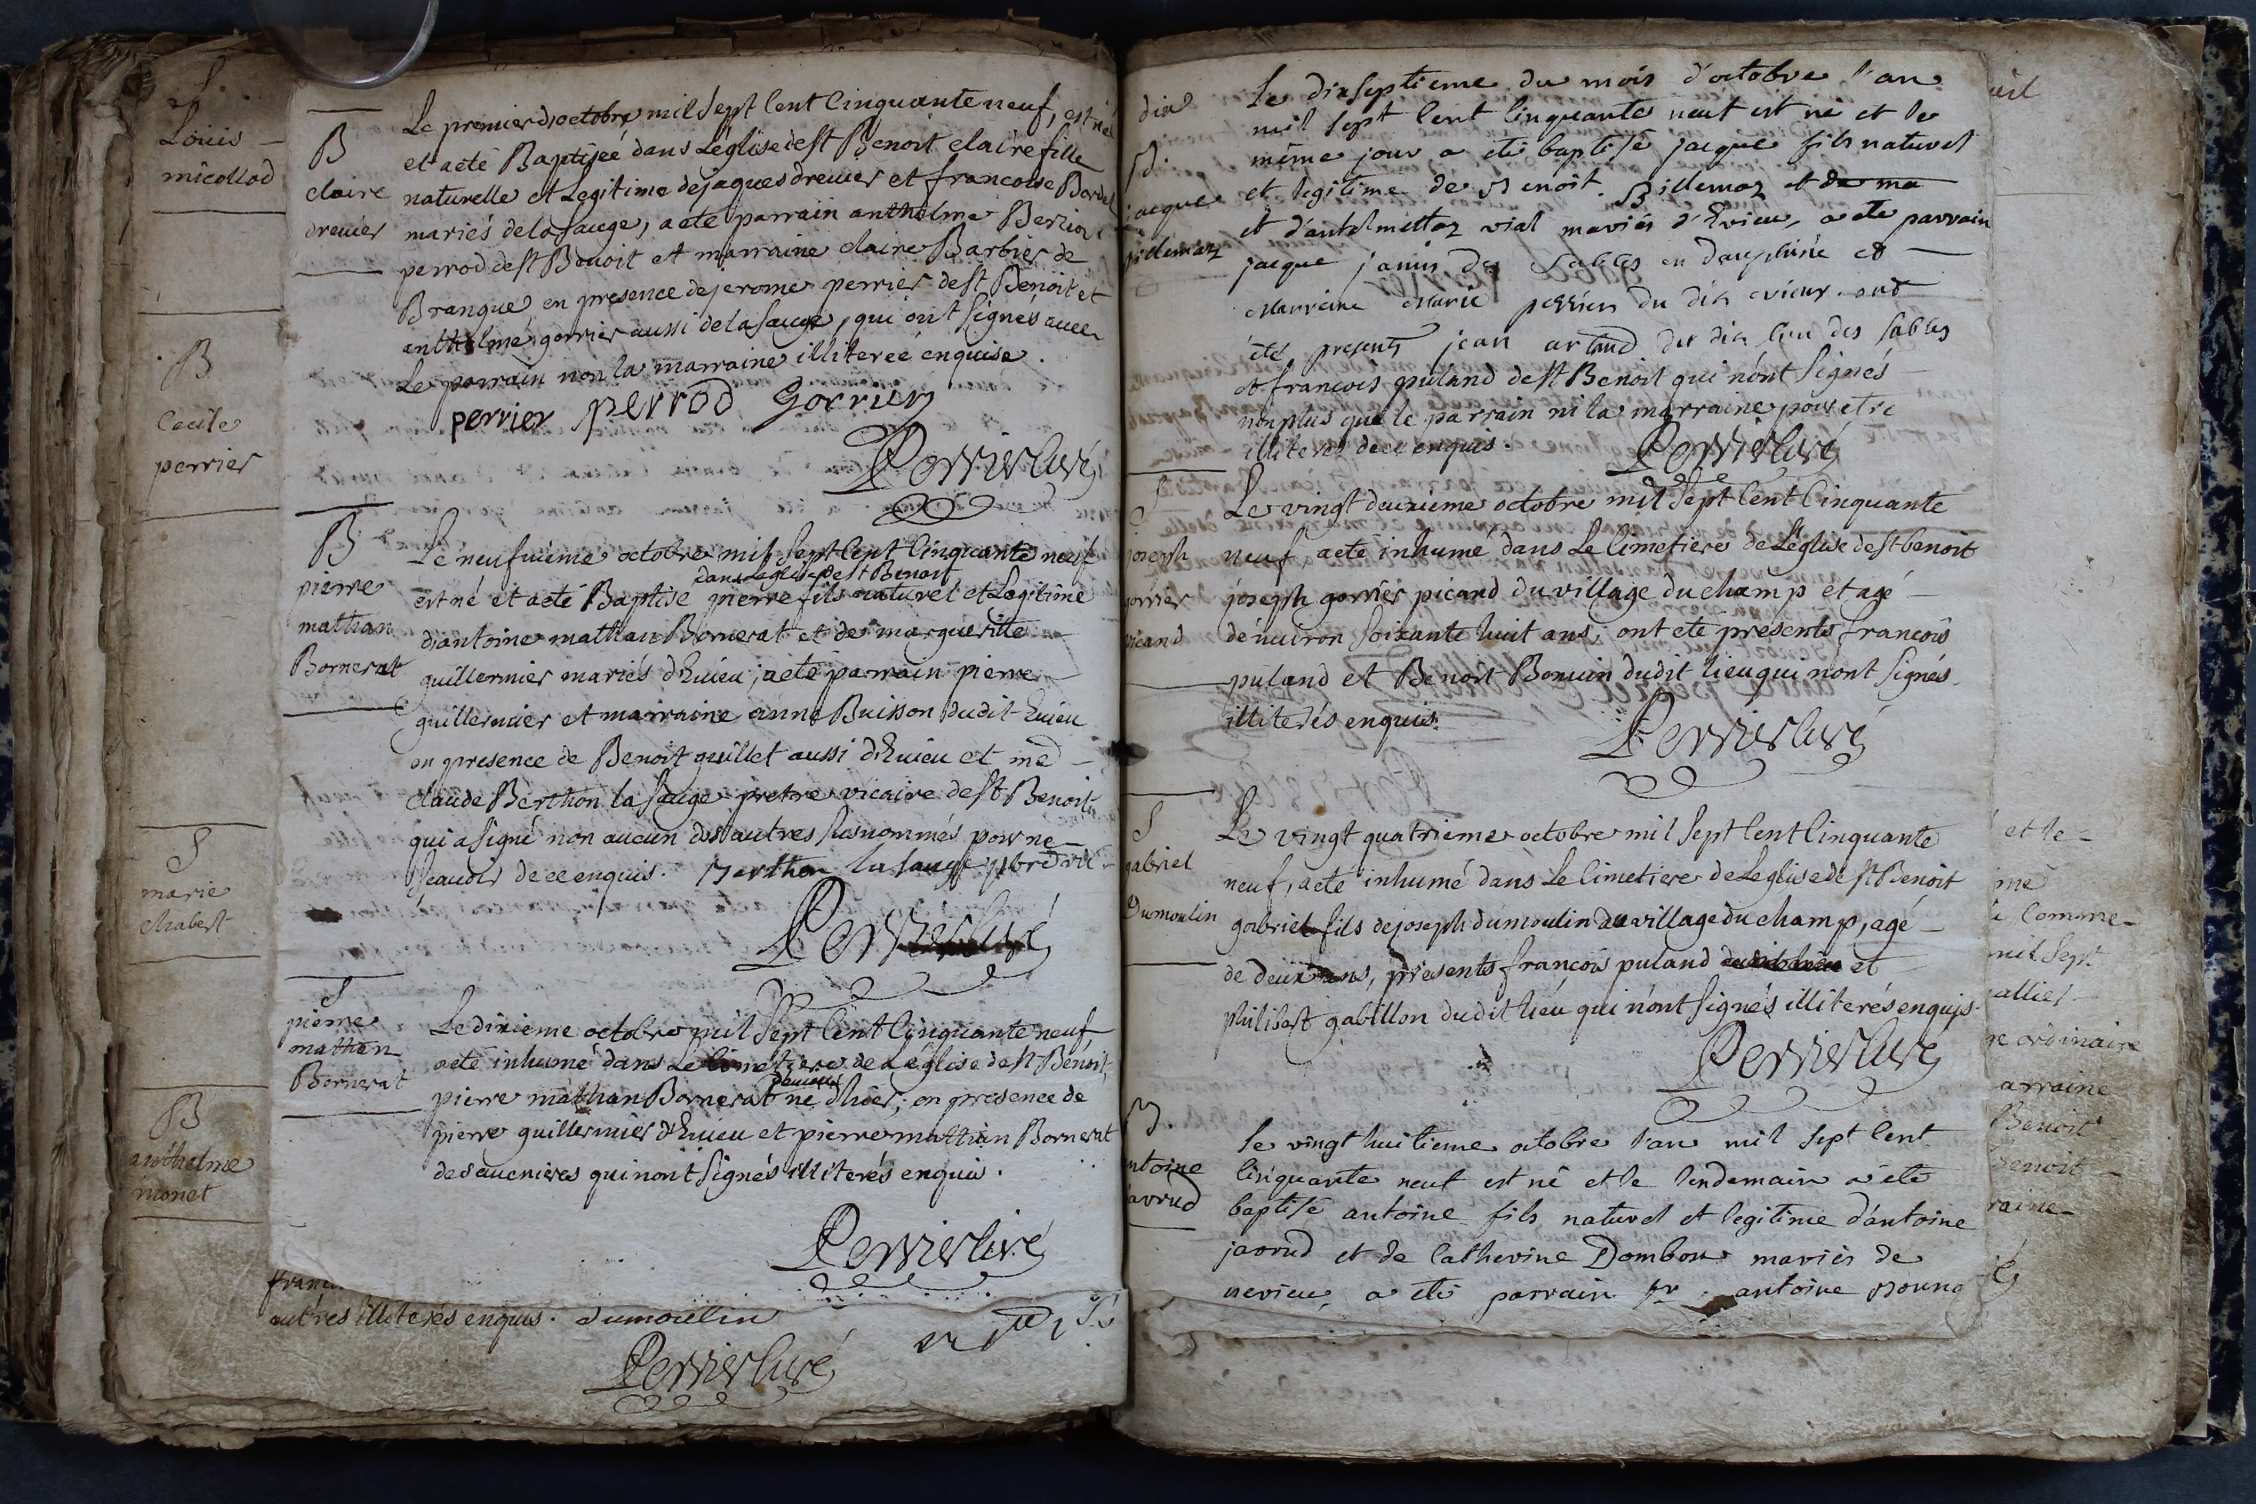 S
Louis
micollod
B
Cecile
perrier
S
marie
chabert
B
anthelme
monet
B
claire
dreuier
Le premier d'octobre mil sept Cent Cinquante neuf, est née
et a eté Baptiseé dans L'église de st Benoit claire fille
naturelle et Legitime de jaques dreuier et francoise Bordel
mariés de la sauge, a eté parrain anthelme Berlio
perrod de st Benoit et marraine claire Barbier de
Brangue en presence de jerome perrier de st Benoit et
anthelme gorrier aussi de la sauge, qui ont signés avec
Le parrain non la marraine illitereé enquise.
perrier perrod Gorrier
Perrier Curé
B
pierre
mathan
Bornerat
Le neufvième octobre mil sept Cent Cinquante neuf
dans Leglise de st Benoit
est né et a eté Baptise pierre fils naturel et Legitime
d'antoine mathan Bornerat et de marguerite
guillermier mariés d'Euieu, a eté parrain pierre
guillermier et marraine anne Buisson dudit Euieu
en presence de Benoit guillet aussi d'Euieu et me
claude Berthon la sauge pretre vicaire de st Benoit
qui a signé non aucun des autres susnommés pour ne
scauoir de ce enquis. Berthon la sauge pbre vic
Perrier Curé
S
pierre
mathan
Bornerat
Le dixieme octobre mil sept Cent Cinquante neuf
a eté inhumé dans Le Cimetiere de L'église de st Benoit,
pierre mathan Bornerat né d'hier, en presence de
pierre guillermier d'Euieu et pierre mathan Bornerat
des auenieres qui nont signés illiterés enquis.
Perrier Curé
franc
autres illiterés enquis. dumoulin
Perrier Curé
dix
B.
jacque
billemaz
Le dixseptieme du mois d'octobre l'an
mil sept Cent Cinquante neuf est né et le
même jour a eté baptisé jacque fils naturel
et legitime de Benoit Billemaz et de ma
et d'antelmettaz vial mariés d'Evieu, a ete parrain
jacque janin des Sables en dauphiné et
Marraine Marie perrier du dit evieux. ont
été presents jean artaud du dit lieu des sables
et francois puland de st Benoit qui n'ont signés
non plus que le parrain ni la marraine pour etre
illiteres de ce enquis.
Perrier Curé
S
joseph
gorrier
picand
Le vingt deuxieme octobre mil sept Cent Cinquante
neuf a eté inhumé dans Le Cimetiere de L'église de st benoit
joseph gorrier picand du village du champ et agé
d'enuiron soixante huit ans, ont eté presents francois
puland et Benoit Bonuin dudit lieu qui nont signés
illiterés enquis.
Perrier Curé
S
gabriel
Dumoulin
Le vingt quatrieme octobre mil sept Cent Cinquante
neuf, a eté inhumé dans Le Cimetiere de Leglise de st Benoit
gabriel fils de joseph dumoulin du village du champ, agé
de deux ans, presents francois puland dudit lieu et
philibert gabillon dudit lieu qui n'ont signés illiterés enquis.
Perrier Curé
B.
antoine
javrud
Le vingt huitieme octobre l'an mil sept Cent
Cinquante neuf est né et le lendemain a été
baptisé antoine fils naturel et legitime d'antoine
javrud et de Catherine Dombon mariés de
uerieu, a été parrain sr. antoine
et le
me
Comme
mil sept
re ordinaire
arraine
Benoit
Benoit
raine